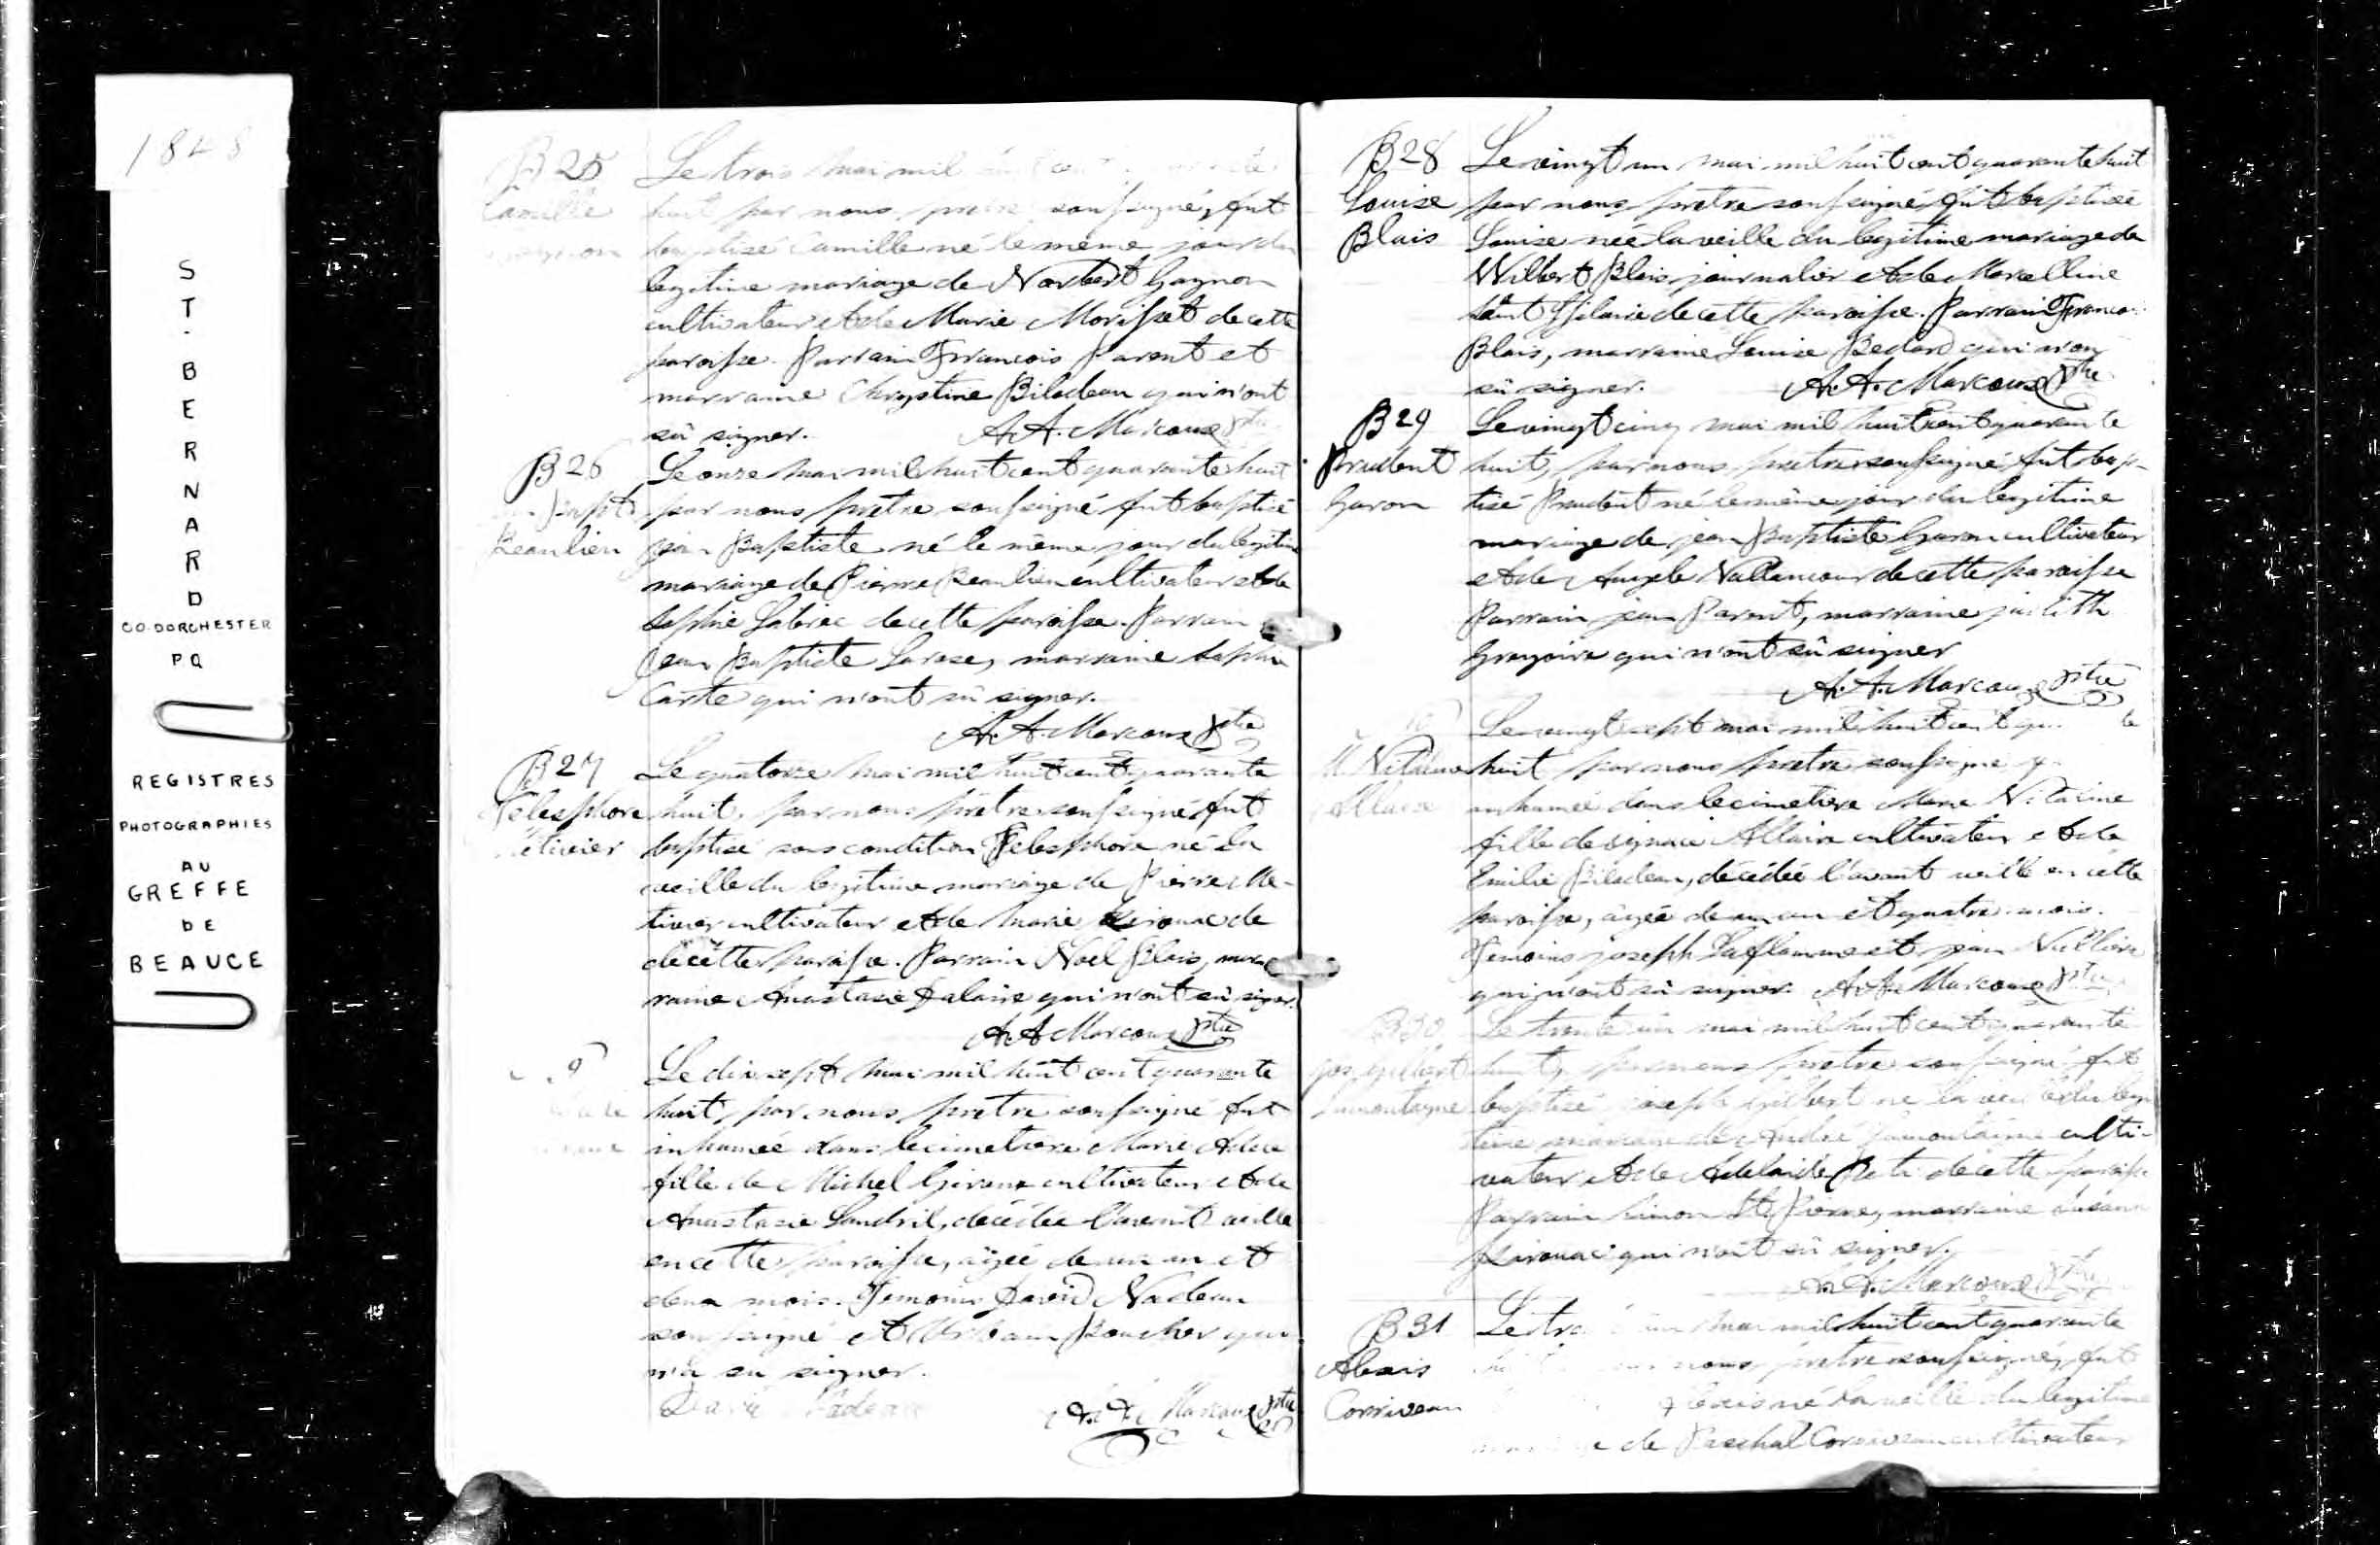 1848
ST. BERNARD
CO. DORCHESTER
PQ
REGISTRES
PHOTOGRAPHIES
AU
GREFFE
DE
BEAUCE
B 25
Camille
Le trois mai mil
huit par nous, pretre soussigné, fut
baptisé Camille né le même jour du
legitime mariage de Norbert Gagnon
cultivateur et de Marie Morisset de cette
paroisse. Parrain Francois Parent et
marraine Chrystine Biladeau qui n'ont
sû signer. A. A. Marcoux Ptre
B 26
Bapt
Beaulieu
Le onze mai mil huit cent quarante huit
par nous pretre soussigné fut baptisé
jean Baptiste né le même jour du legitime
mariage de Pierre Beaulieu cultivateur et de
Sophie de cette paroisse. Parrain
Jean Baptiste marraine Sophie
qui n'ont sû signer.
A. A. Marcoux Ptre
B 27
Telesphore
Le quatorze mai mil huit cent quarante
huit, par nous pretre soussigné fut
baptisé sous condition Telesphore né la
veille du legitime mariage de Pierre Me-
tivier cultivateur et de Marie de
de cette paroisse. Parrain Noel Blais, mar
raine Anastasie qui n'ont sû signer.
A. A. Marcoux Ptre
Le dix sept mai mil huit cent quarante
huit, par nous pretre soussigné fut
inhumée dans le cimetiere Marie
fille de Michel Giroux cultivateur et de
Anastasie Landril, décédée l'avant veille
en cette paroisse, agée de un an et
deux mois. Temoins David Nadeau
soussigné et Urbain Boucher qui
n'a su signer.
David Nadeau A. A. Marcoux Ptre
B 28
Louise
Blais
Le vingt un mai mil huit cent quarante huit
par nous pretre soussigné, fut baptisée
Louise née la veille du legitime mariage de
Wilbert Blais journalier et de Marcelline
Saint Hilaire de cette paroisse. Parrain Francois
Blais, marraine Louise Bedard qui n'ont
sû signer. A. A. Marcoux Ptre
B 29
Prudent
Garon
Le vingt cinq mai mil huit cent quarante
huit, par nous pretre soussigné fut bap-
tisé Prudent né le même jour du legitime
mariage de jean Baptiste Garon cultivateur
et de Angele Vallancour de cette paroisse
Parrain jean Parent, marraine judith
Gregoire qui n'ont sû signer
A. A. Marcoux Ptre
M. Vitaline
Allaire
Le vingt sept mai mil huit cent
huit par nous pretre soussigné
inhumée dans le cimetiere Marie Vitaline
fille de ignace Allaire cultivateur et de
Emilie Biladeau, décédée l'avant veille en cette
paroisse, agée de un an et quatre mois.
Temoins joseph Laflamme et jean
qui n'ont sû signer. A. A. Marcoux Ptre
B 30
jos. gilbert
Lamontagne
Le trente un mai mil huit cent quarante
huit, par nous pretre soussigné fut
baptisé joseph gilbert né la veille du legi
time mariage de André Lamontagne culti-
vateur et de Adelaide de cette paroisse
Parrain Simon St. Pierre, marraine Susanne
Kirouac qui n'ont sû signer.
A. A. Marcoux Ptre
B 31
Alexis
Corriveau
Le un mai mil huit cent quarante
nous pretre soussigné, fut
Alexis né la veille du legitime
de Paschal Corriveau cultivateur